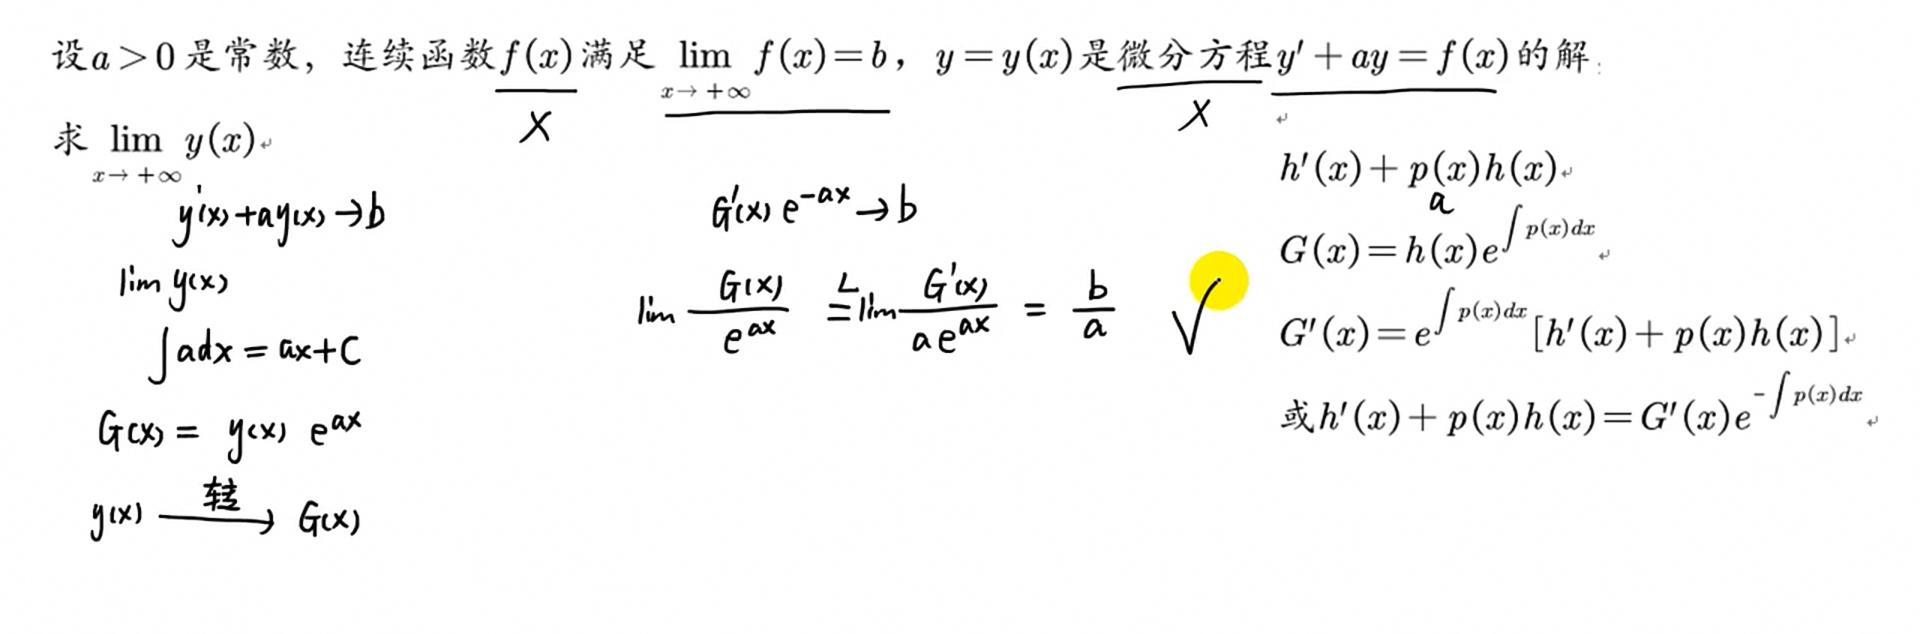 设a>0是常数，连续函数f(x)满足 lim f(x)=b，y=y(x)是微分方程y′+ay=f(x)的解.
x→+∞
X
X
求 lim y(x)
x→+∞
y'(x)+ay(x)→b
lim y(x)
∫adx=ax+C
G(x)= y(x) e^{ax}
y(x) 转→ G(x)
G'(x) e^{-ax}→b
lim G(x)/e^{ax} =^{L} lim G'(x)/(a e^{ax}) = b/a √
h′(x)+p(x)h(x)
a
G(x)=h(x)e^{∫p(x)dx}
G′(x)=e^{∫p(x)dx}[h′(x)+p(x)h(x)]
或h′(x)+p(x)h(x)=G′(x)e^{-∫p(x)dx}